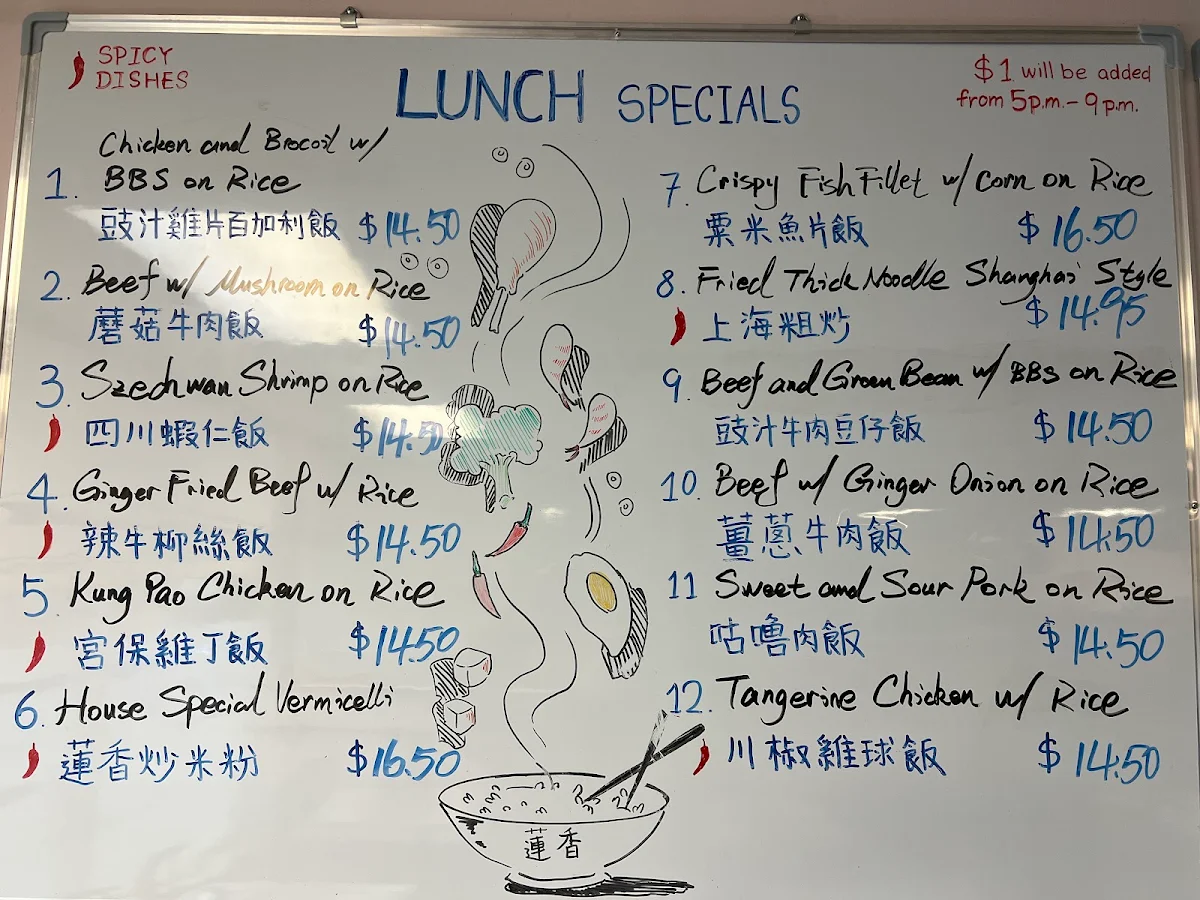 SPICY
DISHES
LUNCH SPECIALS
$1 will be added
from 5p.m.-9p.m.
Chicken and Brocoil w/
1. BBS on Rice
豉汁雞片百加利飯 $14.50
2. Beef w/ Mushroom on Rice
蘑菇牛肉飯 $14.50
3. Szechwan Shrimp on Rice
四川蝦仁飯 $14.50
4. Ginger Fried Beef w/ Rice
辣牛柳絲飯 $14.50
5. Kung Pao Chicken on Rice
宮保雞丁飯 $14.50
6. House Special Vermicelli
蓮香炒米粉 $16.50
7. Crispy Fish Fillet w/ Corn on Rice
粟米魚片飯 $16.50
8. Fried Thick Noodle Shanghai Style
上海粗炒 $14.95
9. Beef and Green Bean w/ BBS on Rice
豉汁牛肉豆仔飯 $14.50
10. Beef w/ Ginger Onion on Rice
薑蔥牛肉飯 $14.50
11 Sweet and Sour Pork on Rice
咕嚕肉飯 $14.50
12. Tangerine Chicken w/ Rice
川椒雞球飯 $14.50
蓮香